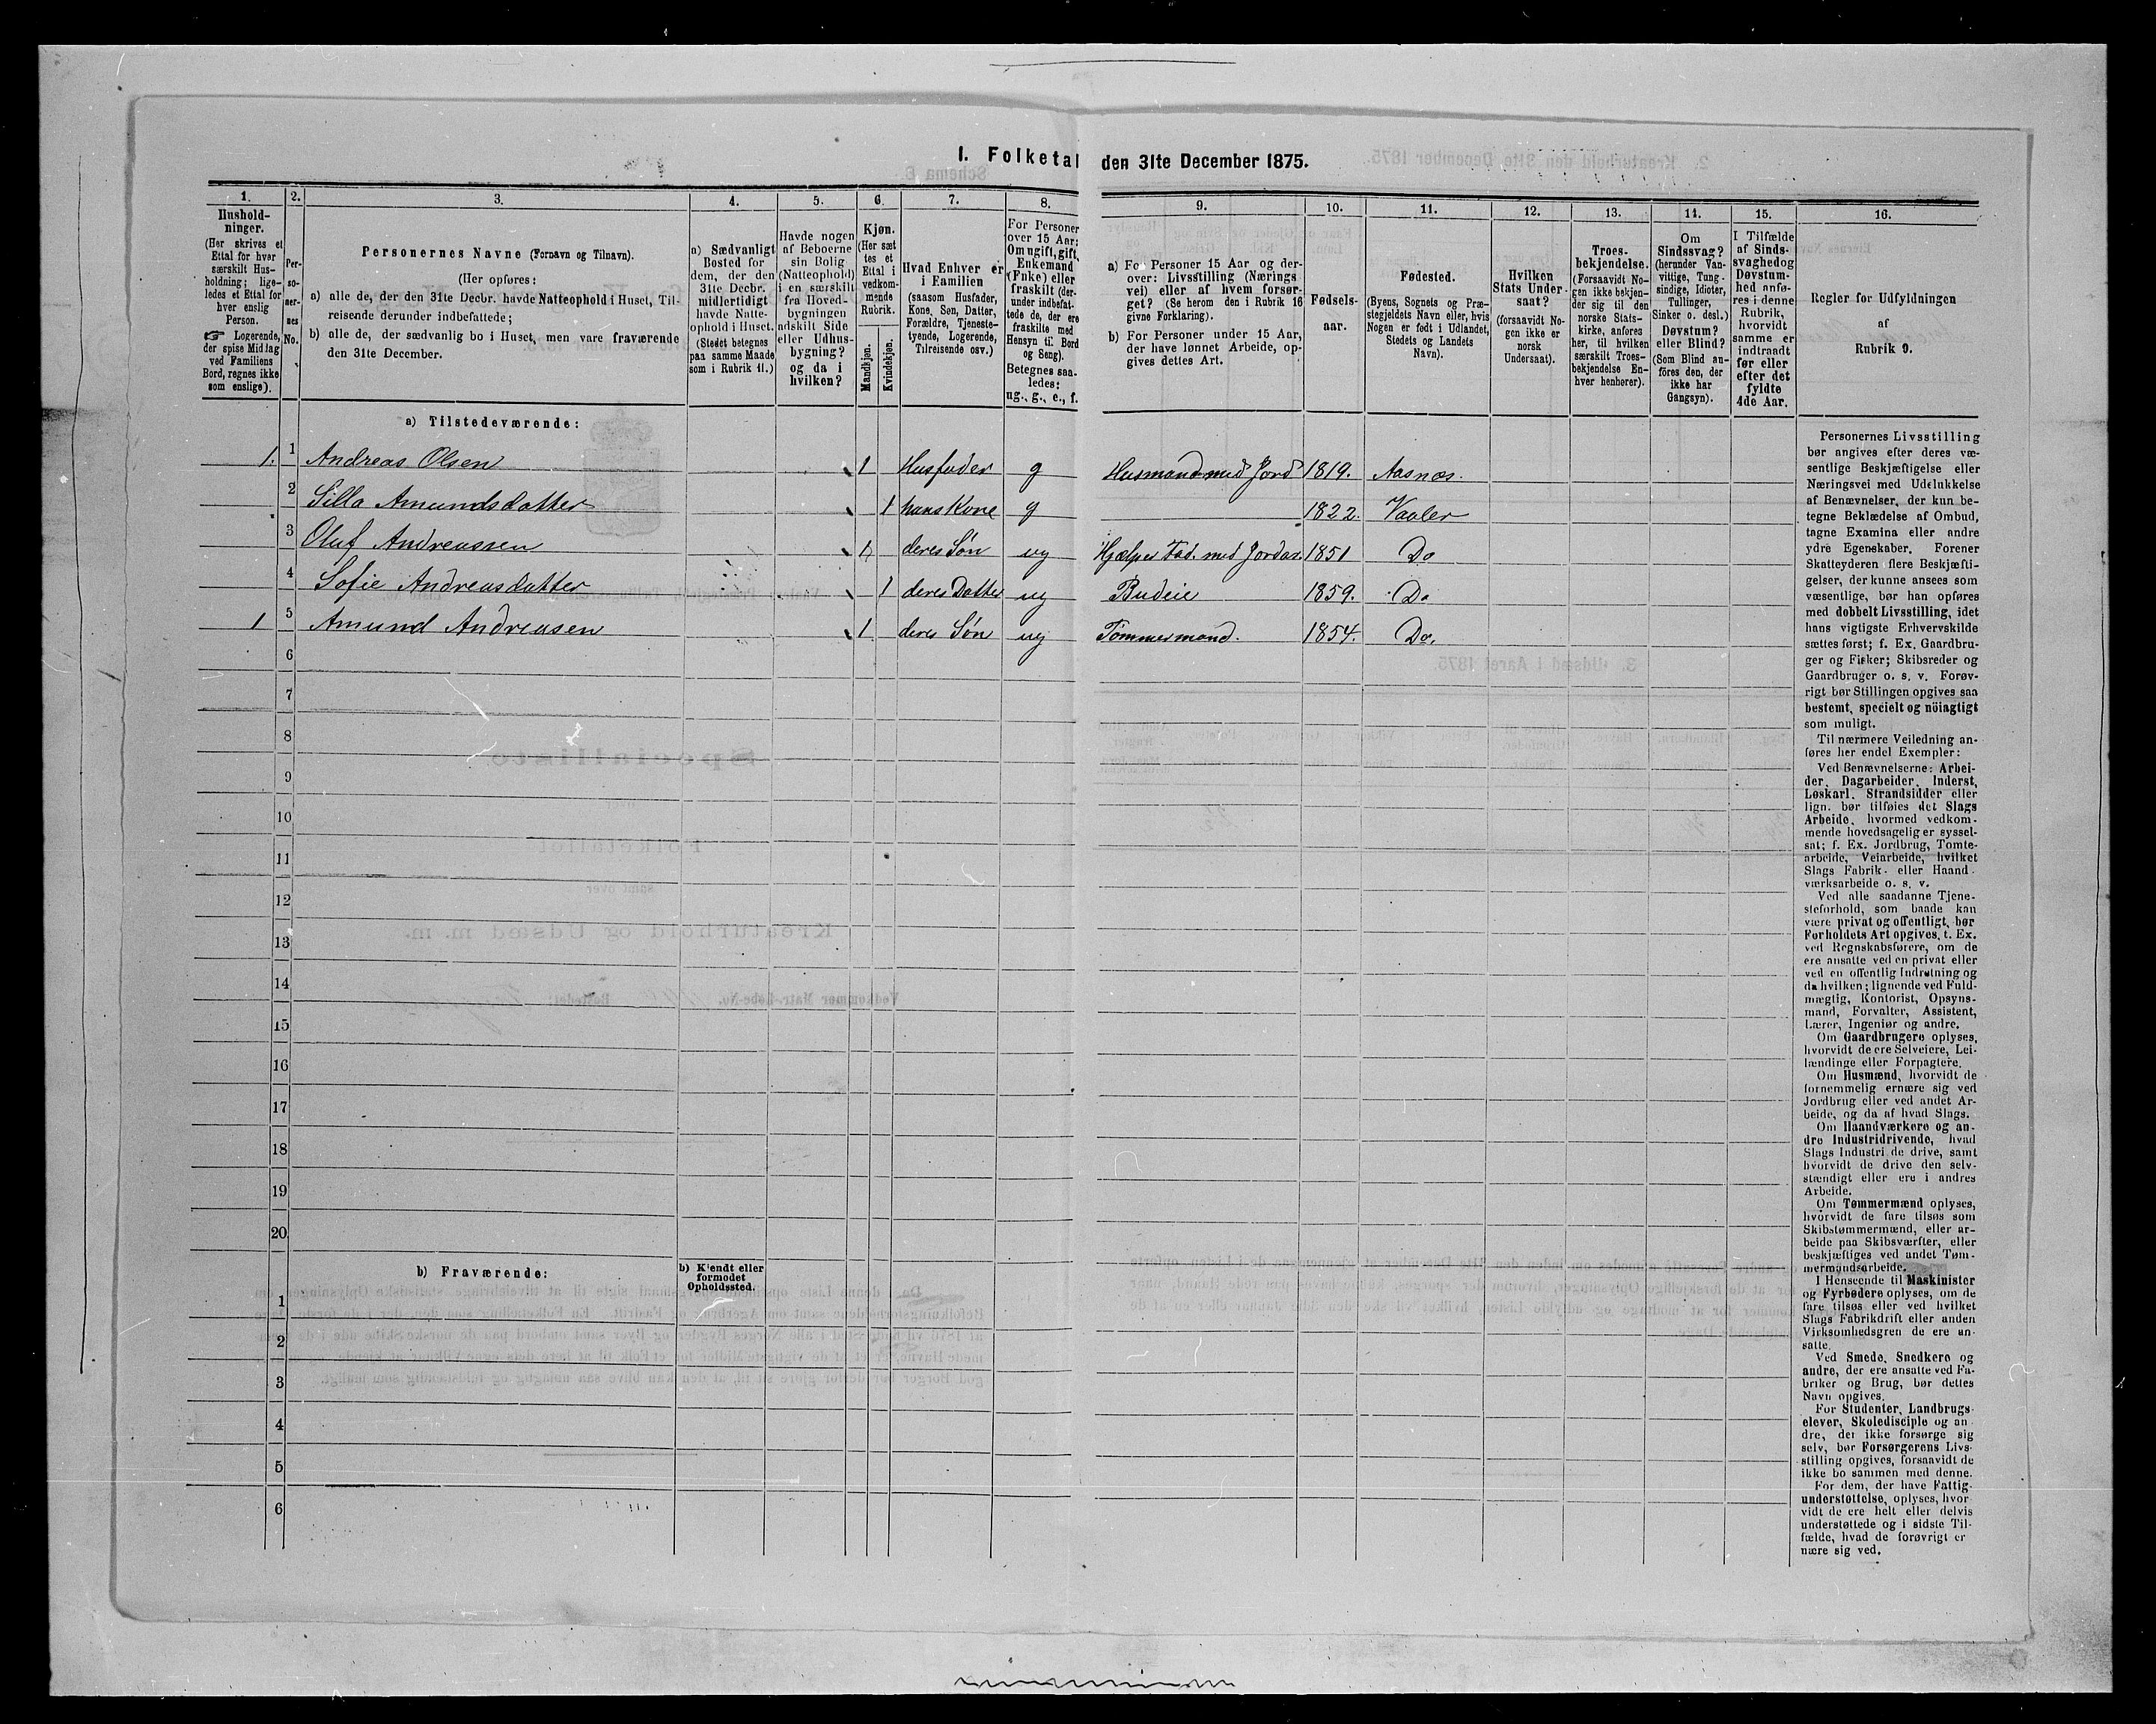 I. Folketal den 31te December 1875.
1.
Hushold-
ninger.
(Her skrives et
Ettal for hver
særskilt Hus-
holdning; lige-
ledes et Ettal for
hver enslig
Person.
☞ Logerende,
der spise Middag
ved Familiens
Bord, regnes ikke
som enslige).
2.
Per-
so-
ner-
nes
No.
3.
Personernes Navne (Fornavn og Tilnavn).
(Her opføres:
a) alle de, der den 31te Decbr. havde Natteophold i Huset, Til-
reisende derunder indbefattede;
b) alle de, der sædvanlig bo i Huset, men vare fraværende
den 31te December.
4.
a) Sædvanligt
Bosted for
dem, der den
31te Decbr.
midlertidigt
havde Natte-
ophold i Huset.
(Stedet betegnes
paa samme Maade
som i Rubrik 11.)
5.
Havde nogen
af Beboerne
sin Bolig
(Natteophold)
i en særskilt
fra Hoved-
bygningen
adskilt Side
eller Udhus-
bygning?
og da i
hvilken?
6.
Kjøn.
(Her sæt
tes et
Ettal i
vedkom-
mende
Rubrik.
Mandkjøn.
Kvindekjøn.
7.
Hvad Enhver er
i Familien
(saasom Husfader,
Kone, Søn, Datter,
Forældre, Tjeneste-
tyende, Logerende,
Tilreisende osv.)
8.
For Personer
over 15 Aar:
Om ugift, gift,
Enkemand
(Enke) eller
fraskilt (der-
under indbefat-
tede de, der ere
fraskilte med
Hensyn til Bord
og Seng).
Betegnes saa-
ledes:
ug., g., e., f.
9.
a) For Personer 15 Aar og der-
over: Livsstilling (Nærings
vei) eller af hvem forsør-
get? (Se herom den i Rubrik 16
givne Forklaring).
b) For Personer under 15 Aar,
der have lønnet Arbeide, op-
gives dettes Art.
10.
Fødsels-
aar.
11.
Fødested.
(Byens, Sognets og Præ-
stegjeldets Navn eller, hvis
Nogen er født i Udlandet,
Stedets og Landets
Navn).
12.
Hvilken
Stats Under-
saat?
(forsaavidt No-
gen ikke er
norsk
Undersaat).
13.
Troes-
bekjendelse.
(Forsaavidt No-
gen ikke bekjen-
der sig til den
norske Stats-
kirke, anføres
her, til hvilken
særskilt Troes-
bekjendelse En-
hver henhører).
14.
Om
Sindssvag?
(herunder Van-
vittige, Tung-
sindige, Idioter,
Tullinger,
Sinker o. desl.)
Døvstum?
eller Blind?
(Som Blind an-
føres den, der
ikke har
Gangsyn).
15.
I Tilfælde
af Sinds-
svaghed og
Døvstum-
hed anfø-
res i denne
Rubrik,
hvorvidt
samme er
indtraadt
før eller
efter det
fyldte
4de Aar.
16.
Regler for Udfyldningen
af
Rubrik 9.
a) Tilstedeværende:
1. 1 Andreas Olsen 1 Husfader g Husmand med Jord 1819. Aasnæs.
2 Silla Amundsdatter 1 hans Kone g 1822. Vaaler
3 Oluf Andreassen 1 deres Søn ug Hjælper Fad. med Jordar. 1851 Do
4 Sofie Andreasdatter 1 deres Datter ug Budeie 1859. Do
1 5 Amund Andreasen 1 deres Søn ug Tømmermand. 1854. Do.
6
7
8
9
10
11
12
13
14
15
16
17
18
19
20
b) Fraværende:
b) Kjendt eller
formodet
Opholdssted.
1
2
3
4
5
6
Personernes Livsstilling
bør angives efter deres væ-
sentlige Beskjæftigelse eller
Næringsvei med Udelukkelse
af Benævnelser, der kun be-
tegne Beklædelse af Ombud,
tagne Examina eller andre
ydre Egenskaber. Forener
Skatteyderen flere Beskjæfti-
gelser, der kunne ansees som
væsentlige, bør han opføres
med dobbelt Livsstilling, idet
hans vigtigste Erhvervskilde
sættes først; f. Ex. Gaardbru-
ger og Fisker; Skibsreder og
Gaardbruger o. s. v. Forøv-
rigt bør Stillingen opgives saa
bestemt, specielt og nöiagtigt
som muligt.
Til nærmere Veiledning an-
føres her endel Exempler:
Ved Benævnelserne: Arbei-
der, Dagarbeider, Inderst,
Løskarl, Strandsidder eller
lign. bør tilføies det Slags
Arbeide, hvormed vedkom-
mende hovedsagelig er syssel-
sat; f. Ex. Jordbrug, Tomte-
arbeide, Veiarbeide, hvilket
Slags Fabrik- eller Haand-
værksarbeide o. s. v.
Ved alle saadanne Tjene-
steforhold, som baade kan
være privat og offentligt, bør
Forholdets Art opgives, t. Ex.
ved Regnskabsførere, om de
ere ansatte ved en privat eller
ved en offentlig Indretning og
da hvilken; lignende ved Fuld-
mægtig, Kontorist, Opsyns-
mand, Forvalter, Assistent,
Lærer, Ingeniør og andre.
Om Gaardbrugere oplyses,
hvorvidt de ere Selveiere, Lei-
lændinge eller Forpagtere.
Om Husmænd, hvorvidt de
fornemmelig ernære sig ved
Jordbrug eller ved andet Ar-
beide, og da af hvad Slags.
Om Haandværkere og an-
dre Industridrivende, hvad
Slags Industri de drive, samt
hvorvidt de drive den selv-
stændigt eller ere i andres
Arbeide.
Om Tømmermænd oplyses,
hvorvidt de fare tilsøs som
Skibstømmermænd, eller ar-
beide paa Skibsværfter, eller
beskjæftiges ved andet Tøm-
mermandsarbeide.
I Henseende til Maskinister
og Fyrbødere oplyses, om de
fare tilsøs eller ved hvilket
Slags Fabrikdrift eller anden
Virksomhedsgren de ere an-
satte.
Ved Smede, Snedkere og
andre, der ere ansatte ved Fa-
briker og Brug, bør dettes
Navn opgives.
For Studenter, Landbrugs-
elever, Skoledisciple og an
dre, der ikke forsørge sig
selv, bør Forsørgerens Livs-
stilling opgives, forsaavidt de
ikke bo sammen med denne.
For dem, der have Fattig-
understøttelse, oplyses, hvor-
vidt de ere helt eller delvis
understøttede og i sidste Til-
fælde, hvad de forøvrigt er
nære sig ved.